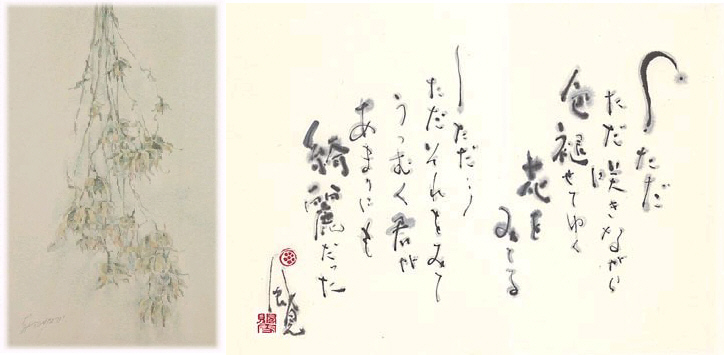 ただ
ただ咲きながら
色褪せてゆく
花をみてる
ただ…
ただそれをみて
うつむく君が
あまりにも
綺麗だった